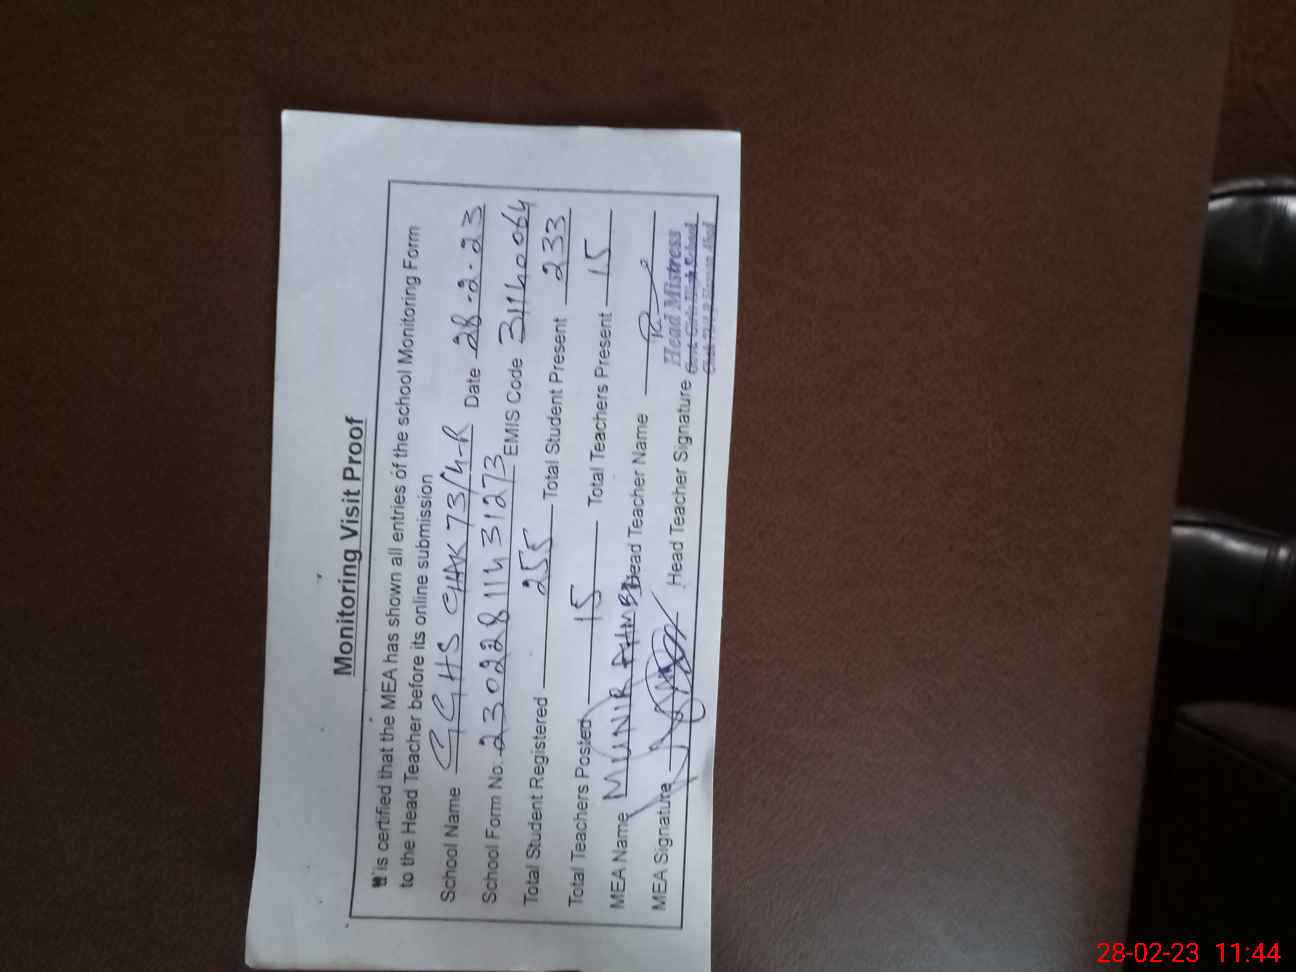 Monitoring Visit Proof
It is certified that the MEA has shown all entries of the school Monitoring Form
to the Head Teacher before its online submission
School Name GGHS CHAK 73/4-R Date 28-2-23
School Form No. 23022811431273 EMIS Code 31140064
Total Student Registered 255 Total Student Present 233
Total Teachers Posted 15 Total Teachers Present 15
MEA Name MUNIR AHMED Head Teacher Name
MEA Signature Head Teacher Signature
Head Mistress
Govt. Girls High School
Chak 73/4-R
28-02-23 11:44